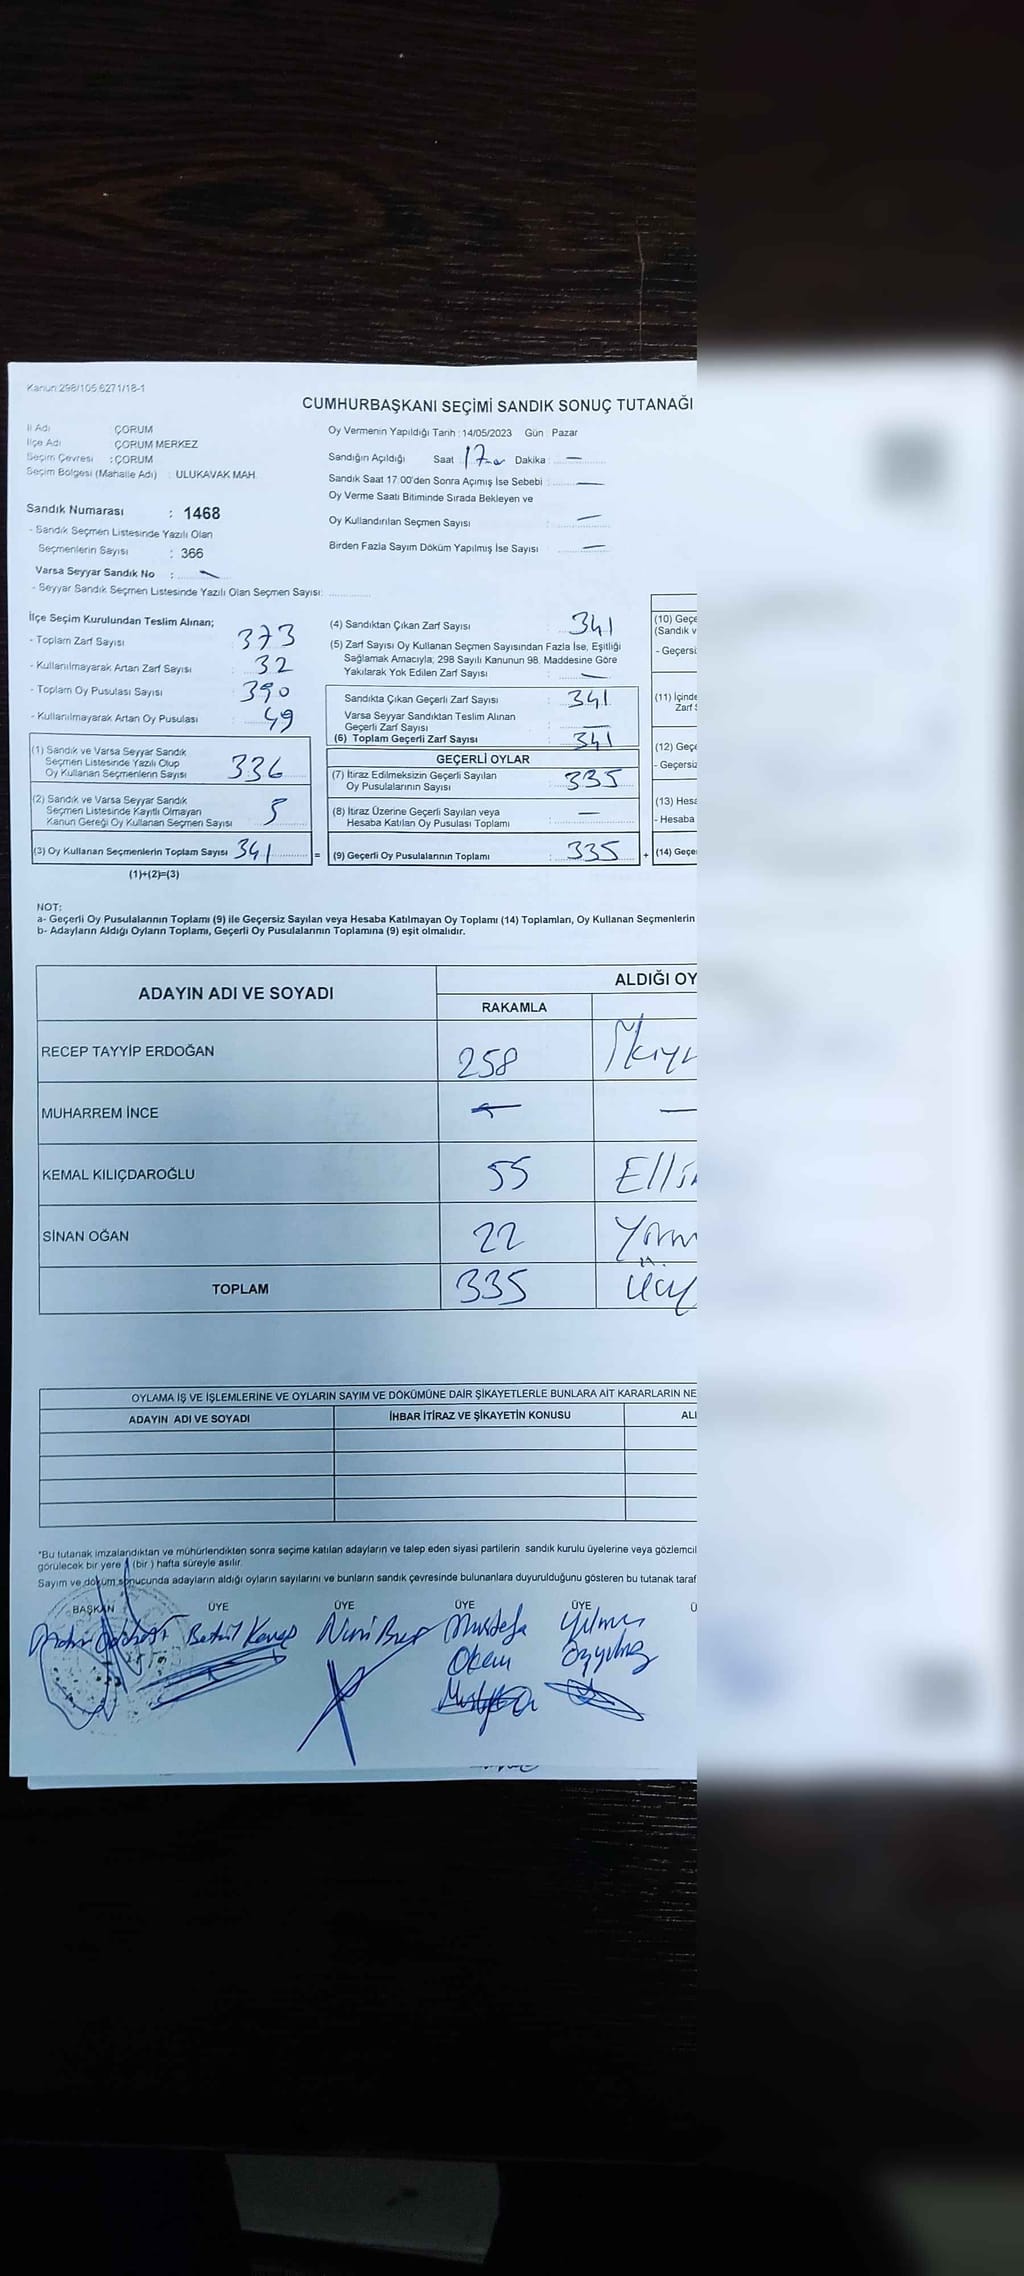 Kanun 298/105,6271/18-1
CUMHURBAŞKANI SEÇİMİ SANDIK SONUÇ TUTANAĞI
İl Adı ÇORUM
İlçe Adı ÇORUM MERKEZ
Seçim Çevresi : ÇORUM
Seçim Bölgesi (Mahalle Adı) : ULUKAVAK MAH.
Oy Vermenin Yapıldığı Tarih : 14/05/2023 Gün : Pazar
Sandığın Açıldığı Saat : 17 Dakika : —
Sandık Saat 17.00'den Sonra Açımış İse Sebebi : —
Oy Verme Saati Bitiminde Sırada Bekleyen ve
Oy Kullandırılan Seçmen Sayısı : —
Birden Fazla Sayım Döküm Yapılmış İse Sayısı : —
Sandık Numarası : 1468
- Sandık Seçmen Listesinde Yazılı Olan
Seçmenlerin Sayısı : 366
Varsa Seyyar Sandık No : —
- Seyyar Sandık Seçmen Listesinde Yazılı Olan Seçmen Sayısı:
İlçe Seçim Kurulundan Teslim Alınan;
- Toplam Zarf Sayısı : 373
- Kullanılmayarak Artan Zarf Sayısı : 32
- Toplam Oy Pusulası Sayısı : 390
- Kullanılmayarak Artan Oy Pusulası : 49
(1) Sandık ve Varsa Seyyar Sandık
Seçmen Listesinde Yazılı Olup
Oy Kullanan Seçmenlerin Sayısı 336
(2) Sandık ve Varsa Seyyar Sandık
Seçmen Listesinde Kayıtlı Olmayan
Kanun Gereği Oy Kullanan Seçmen Sayısı 5
(3) Oy Kullanan Seçmenlerin Toplam Sayısı 341 =
(1)+(2)=(3)
(4) Sandıktan Çıkan Zarf Sayısı : 341
(5) Zarf Sayısı Oy Kullanan Seçmen Sayısından Fazla İse, Eşitliği
Sağlamak Amacıyla; 298 Sayılı Kanunun 98. Maddesine Göre
Yakılarak Yok Edilen Zarf Sayısı : —
Sandıkta Çıkan Geçerli Zarf Sayısı : 341
Varsa Seyyar Sandıktan Teslim Alınan
Geçerli Zarf Sayısı : —
(6) Toplam Geçerli Zarf Sayısı : 341
GEÇERLİ OYLAR
(7) İtiraz Edilmeksizin Geçerli Sayılan
Oy Pusulalarının Sayısı : 335
(8) İtiraz Üzerine Geçerli Sayılan veya
Hesaba Katılan Oy Pusulası Toplamı : —
(9) Geçerli Oy Pusulalarının Toplamı : 335 +
(10) Geçe
(Sandık v
- Geçersi
(11) İçinde
Zarf S
(12) Geçe
- Geçersiz
(13) Hesa
- Hesaba
(14) Geçe
NOT:
a- Geçerli Oy Pusulalarının Toplamı (9) ile Geçersiz Sayılan veya Hesaba Katılmayan Oy Toplamı (14) Toplamları, Oy Kullanan Seçmenlerin
b- Adayların Aldığı Oyların Toplamı, Geçerli Oy Pusulalarının Toplamına (9) eşit olmalıdır.
ADAYIN ADI VE SOYADI ALDIĞI OY
RAKAMLA
RECEP TAYYİP ERDOĞAN 258 İkiyü
MUHARREM İNCE — —
KEMAL KILIÇDAROĞLU 55 Elli
SİNAN OĞAN 22 Yirm
TOPLAM 335 Üçy
OYLAMA İŞ VE İŞLEMLERİNE VE OYLARIN SAYIM VE DÖKÜMÜNE DAİR ŞİKAYETLERLE BUNLARA AİT KARARLARIN NE
ADAYIN ADI VE SOYADI İHBAR İTİRAZ VE ŞİKAYETİN KONUSU ALI
*Bu tutanak imzalandıktan ve mühürlendikten sonra seçime katılan adayların ve talep eden siyasi partilerin sandık kurulu üyelerine veya gözlemcil
görülecek bir yere (bir ) hafta süreyle asılır.
Sayım ve döküm sonucunda adayların aldığı oyların sayılarını ve bunların sandık çevresinde bulunanlara duyurulduğunu gösteren bu tutanak taraf
BAŞKAN ÜYE ÜYE ÜYE ÜYE Ü
Mustafa Yılmaz
Okan